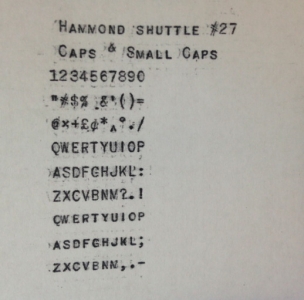 HAMMOND SHUTTLE #27
CAPS & SMALL CAPS
1234567890
"#$% &'()=
@×+£¢*‸°./
QWERTYUIOP
ASDFGHJKL:
ZXCVBNM?.!
QWERTYUIOP
ASDFGHJKL;
ZXCVBNM,.-